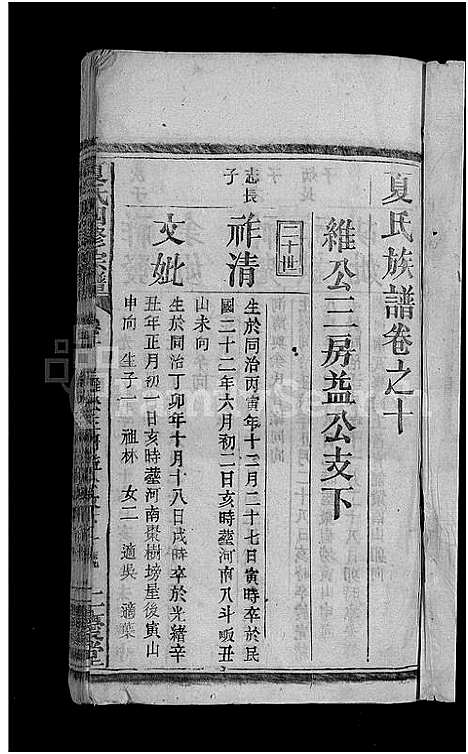 夏氏族譜卷之十
維公三房益公支下
二十世
志長子
祚清
生於同治丙寅年十二月二十七日寅時卒於民
國二十二年六月初二日亥時塟河南八斗畈丑
山未向
文妣
生於同治丁卯年十月十八日戌時卒於光緒辛
丑年正月初一日亥時塟河南棗樹塝屋後寅山
申向 生子一 祖林 女二 適吳 適葉
夏氏四修宗譜